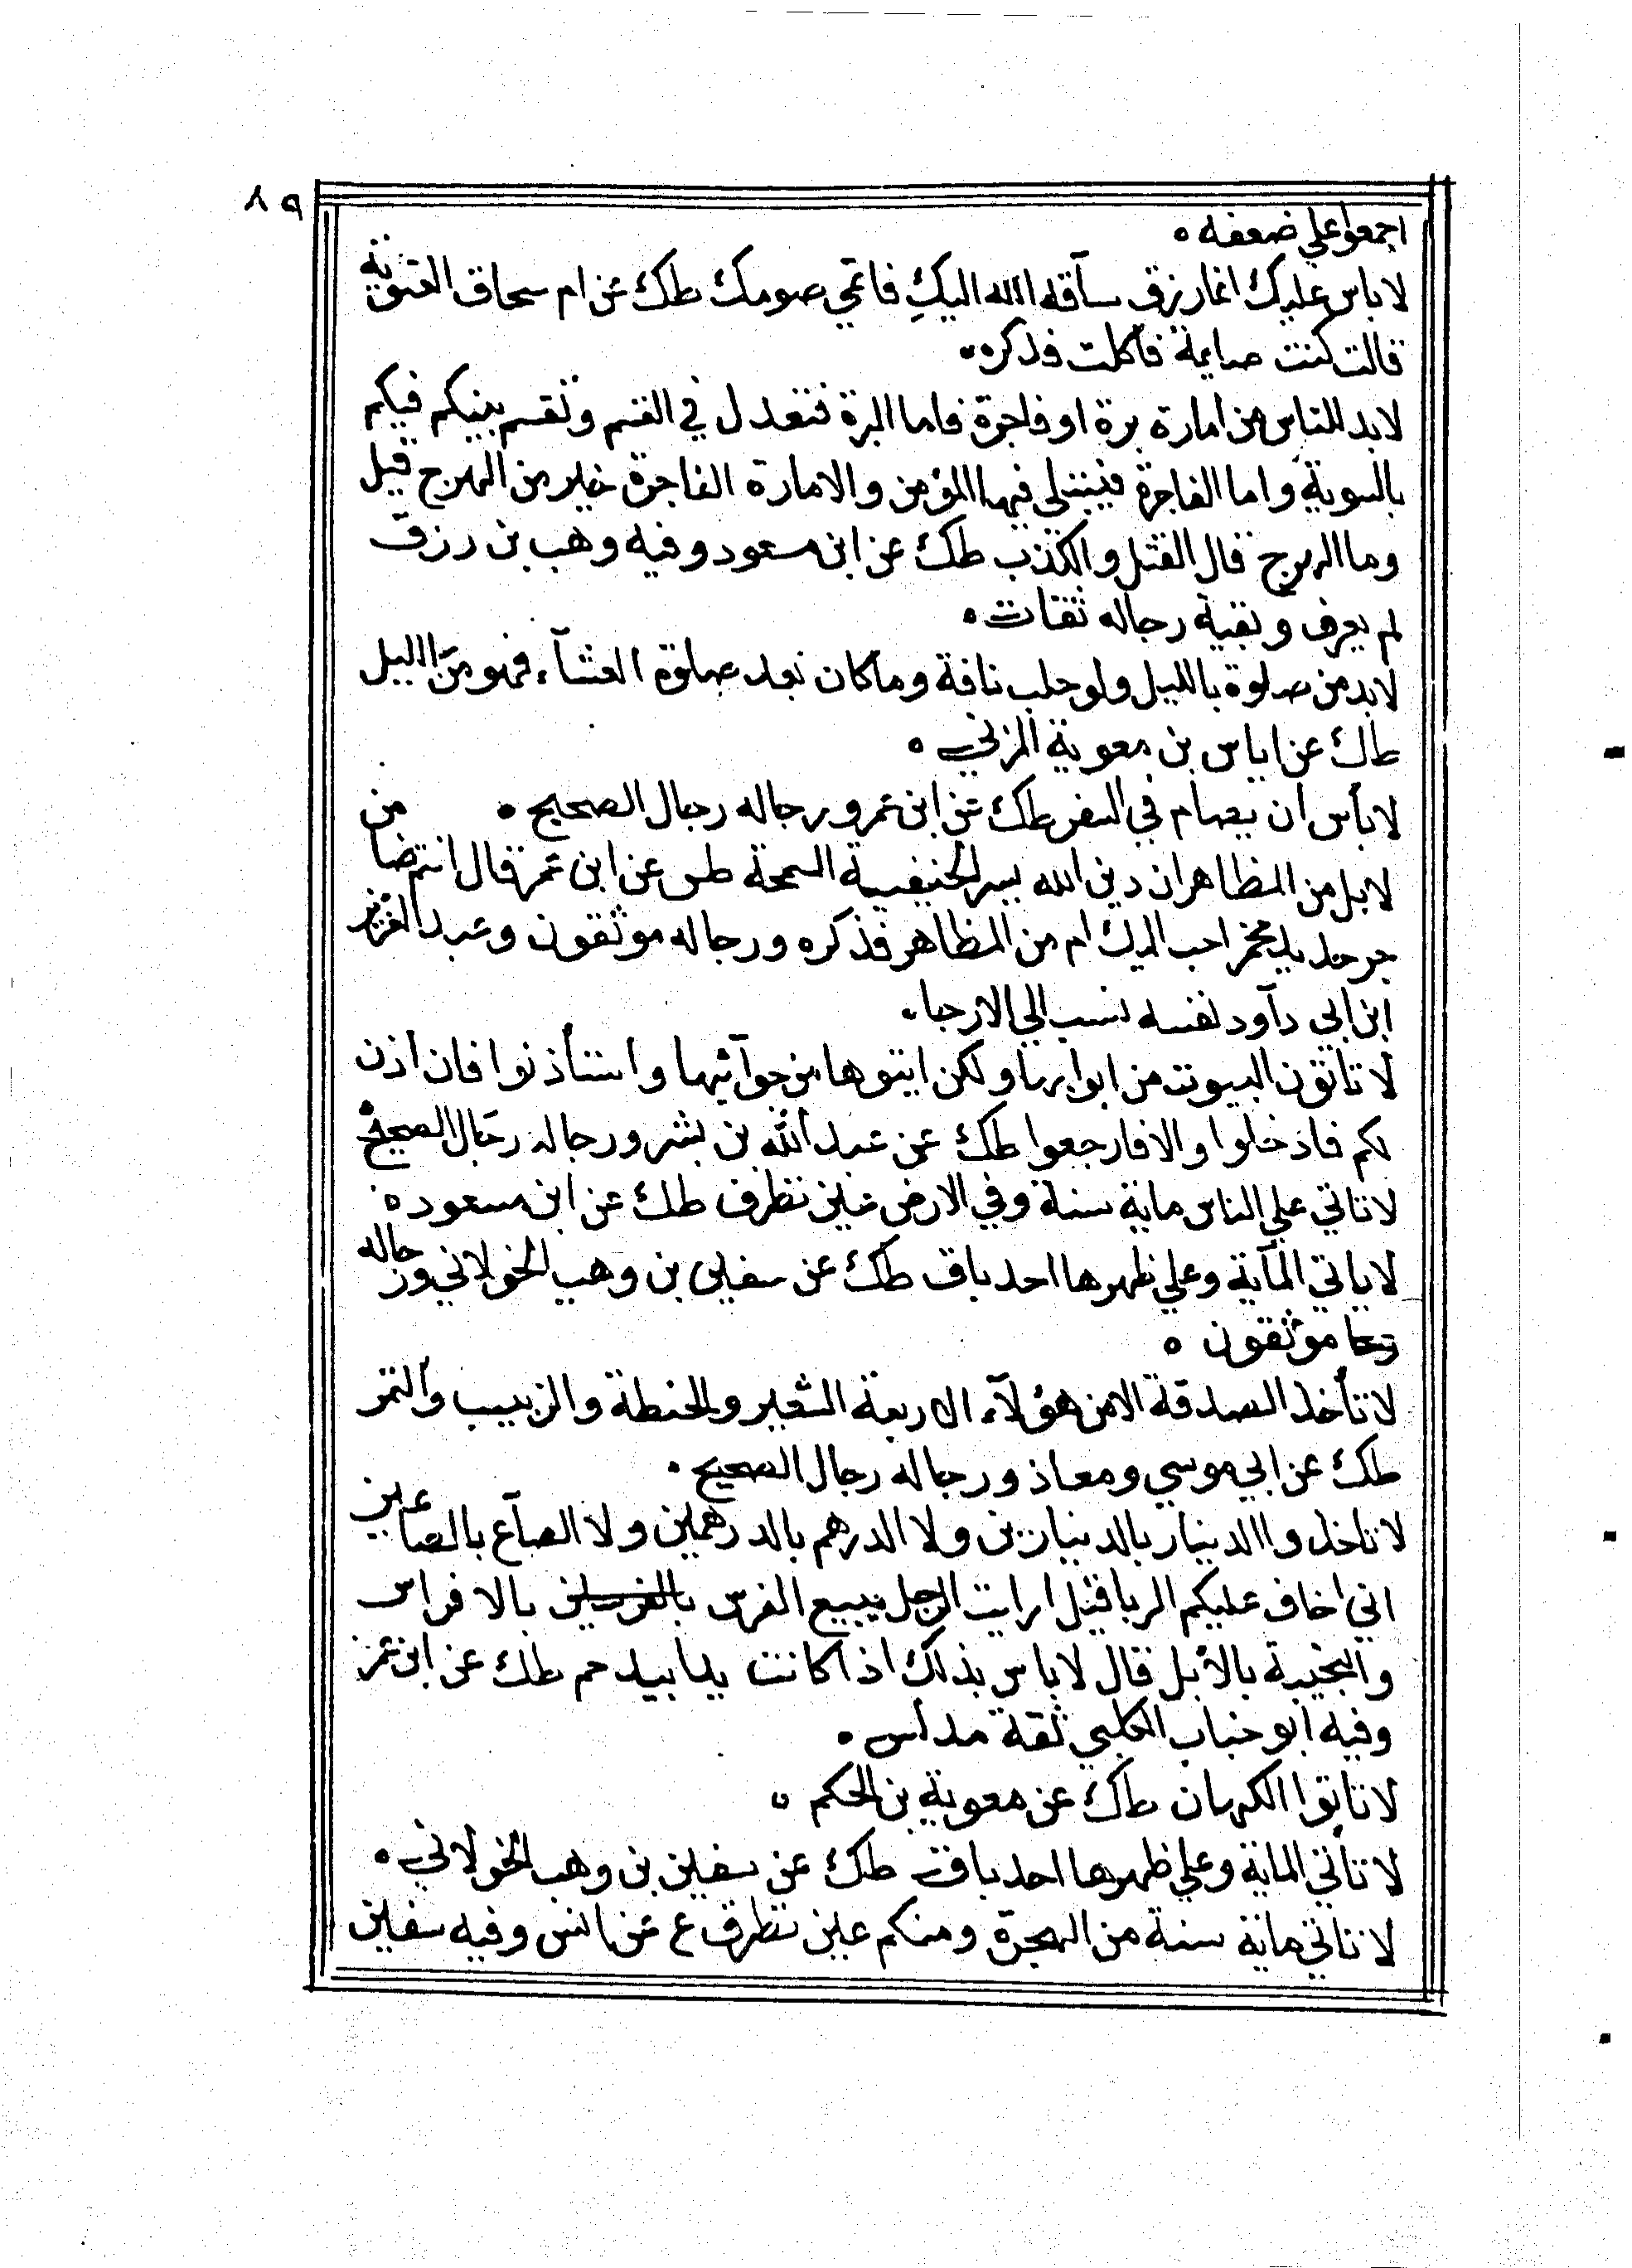 ٨٩
اجمعوا علي ضعفه ه
لا باس عليك انما رزق ساقه الله اليكِ فاتمي صومك طك عن ام سحاق الغنوية
قالت كنت صايمة فاكلت فذكره ه
لابد للناس من امارة برة او فاجرة فاما البرة فتعدل في القسم وتقسم بينكم فيكم
بالسوية واما الفاجرة فيبتلي فيها المؤمن والامارة الفاجرة خير من الهرج قيل
وما الهرج قال القتل والكذب طك عن ابن مسعود وفيه وهب بن رزق
لم يعرف وبقية رجاله ثقات ه
لابد من صلوة بالليل ولو حلب ناقة وما كان بعد صلوة العشآء فهو من الليل
طك عن اياس بن معوية المزني ه
لا بأس ان يصام في السفر طك عن ابن عمرو رجاله رجال الصحيح ه
لا بل من المظاهر ان دين الله يسر الحنيفية السمحة طس عن ابن عمر قال انتوضا من
جر جديد مخمر احب اليك ام من المظاهر فذكره ورجاله موثقون وعبد العزيز
ابن ابي دآود نفسه نسب الي الارجا ه
لا تاتون البيوت من ابوابها ولكن ايتوها من جوآنبها واستأذنوا فان اذن
لكم فادخلوا والا فارجعوا طك عن عبد الله بن بشر ورجاله رجال الصحيح
لا تاتي علي الناس ماية سنة وفي الارض عين تطرف طك عن ابن مسعود ه
لا ياتي المآية وعلي ظهرها احد باق طك عن سفين بن وهب الخولاني ورجاله
موثقون ه
لا تأخذ الصدقة الا من هؤلآء الاربعة الشعير والحنطة والزبيب والتمر
طك عن ابي موسي ومعاذ ورجاله رجال الصحيح ه
لا تاخذوا الدينار بالدينارين ولا الدرهم بالدرهمين ولا الصآع بالصاعين
اني اخاف عليكم الربا قيل ارايت الرجل يبيع الفرس بالفرسين بالافراس
والنجيبة بالابل قال لا باس بذلك اذا كانت يدا بيد حم طك عن ابن عمر
وفيه ابو جناب الكلبي ثقة مدلس ه
لا تاتوا الكهان طك عن معوية بن الحكم ه
لا تأتي الماية وعلي ظهرها احد باق طك عن سفين بن وهب الخولاني ه
لا تاتي ماية سنة من الهجرة ومنكم عين تطرف ع عن انس وفيه سفين